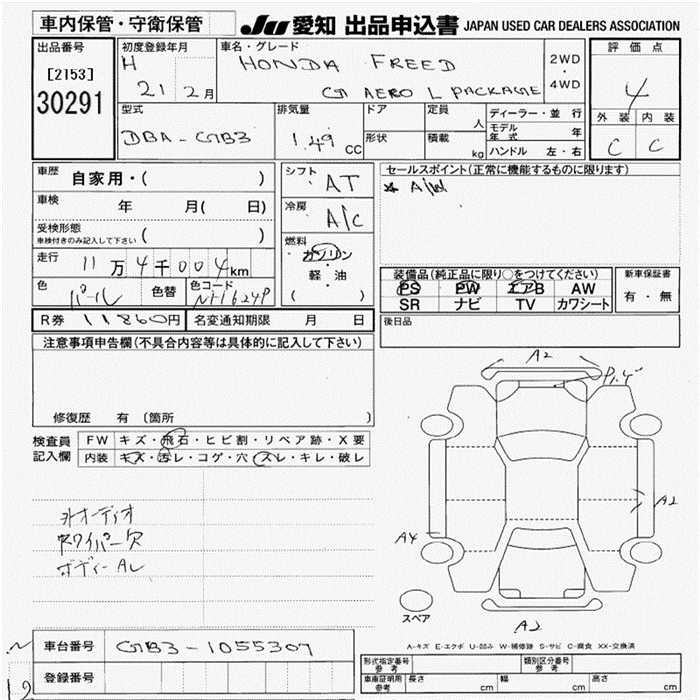 車内保管・守衛保管 JU 愛知 出品申込書 JAPAN USED CAR DEALERS ASSOCIATION
出品番号
[2153]
30291
初度登録年月
H
21 2月
車名・グレード
HONDA FREED
G AERO L PACKAGE
2WD
・
4WD
評価点
4
外装 内装
C C
型式
DBA-GB3
排気量
1.49 CC
ドア
形状
定員 人
積載 kg
ディーラー・並行
モデル 年
ハンドル 左・右
車歴 自家用・( )
車検 年 月( 日)
受検形態
車検付きのみ記入して下さい ( )
走行 11万4千004km
色 パール 色替 色コード NH624P
シフト AT
冷房 A/C
燃料
ガソリン
・
軽・油
( )
セールスポイント(正常に機能するものに限ります)
* A/W
装備品(純正品に限り○をつけてください)
PS PW エアB AW
SR ナビ TV カワシート
新車保証書
有・無
R券 11860円 名変通知期限 月 日
後日品
注意事項申告欄(不具合内容等は具体的に記入して下さい)
修復歴 有 〔箇所
検査員
記入欄
FW キズ・飛石・ヒビ割・リペア跡・X要
内装 キズ・汚レ・コゲ・穴・スレ・キレ・破レ
オーディオ
ワイパー欠
ボディーAレ
A2
A2
A4
A2
スペア
A-キズ E-エクボ U-凹み W-補修跡 S-サビ C-腐食 XX-交換済
車台番号 GB3-1055307
登録番号
型式指定番号
参考
類別区分番号
参考
車庫証明用
参考
長さ cm 幅 cm 高さ cm